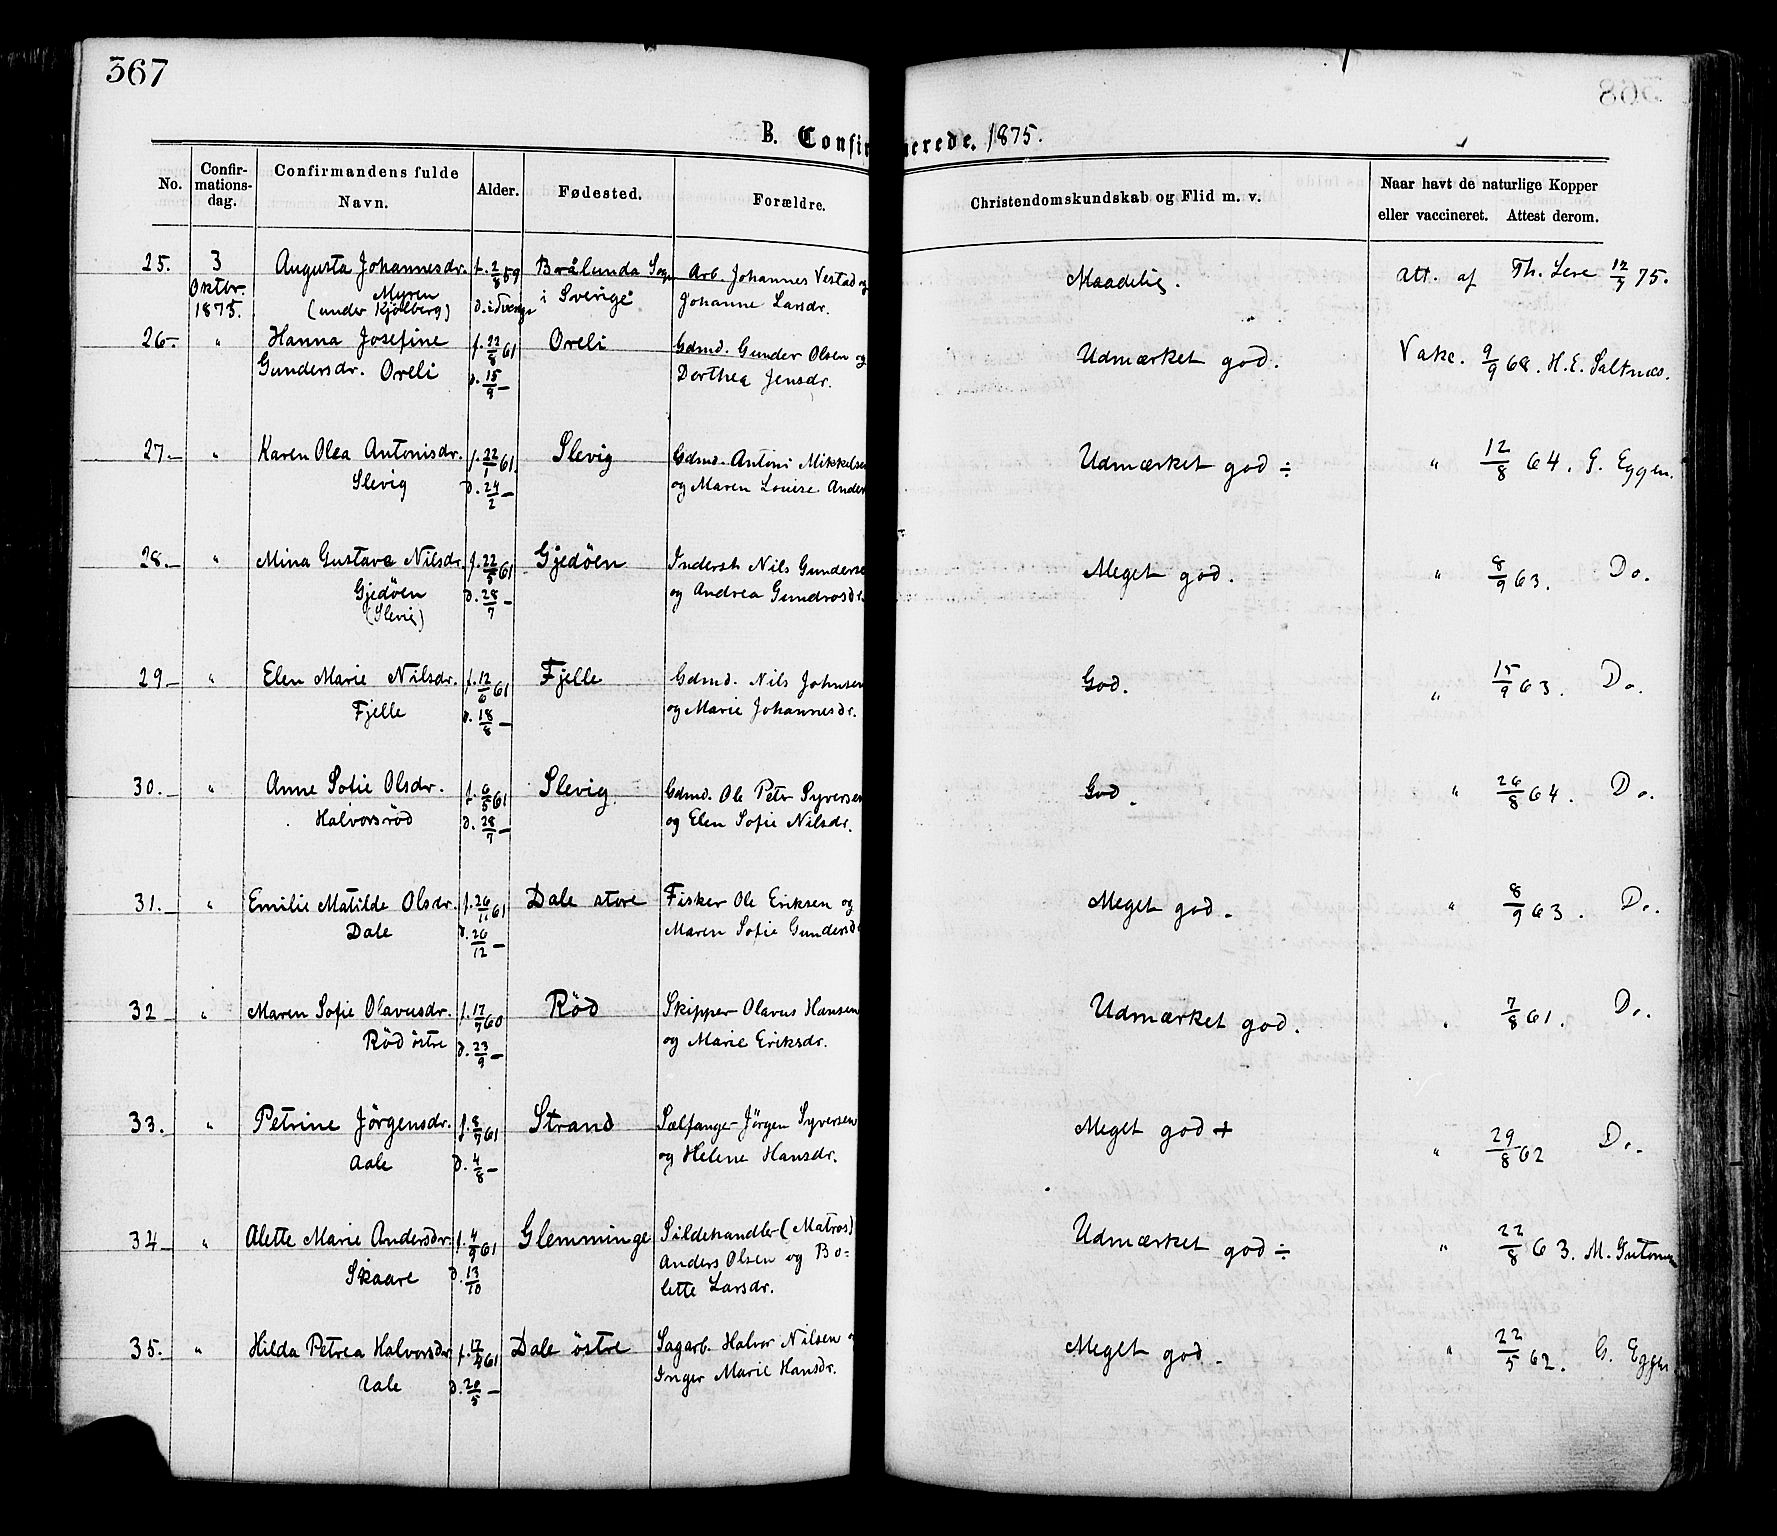 367
B. Confirmerede. 1875.
No. Confir-mations-dag. Confirmandens fulde Navn. Alder. Fødested. Forældre. Christendomskundskab og Flid m. v. Naar havt de naturlige Kopper eller vaccineret. Attest derom.
25. 3 Augusta Johannesdr. f. 2/8 59 Brålunda Sogn Arb. Johannes Vestad og Maadelig. Att. af Th. Lere 12/7 75.
Oktbr. Myren i Sverige Johanne Larsdr.
1875. (under Kjölberg)
26. " Hanna Josefine f. 22/8 61 Oreli Gdmd. Gunder Olsen og Udmærket god. Vakc. 9/9 68. H. E. Saltnes.
Gundersdr. Oreli d. 15/9 – Dorthea Jensdr.
27. " Karen Olea Antonisdr. f. 22/1 61. Slevig Gdmd. Antoni Mikkelsen Udmærket god ÷ " 12/8 64. G. Eggen.
Slevig d. 24/2 – og Maren Louise Anders
28. " Mina Gustava Nilsdr. f. 22/5 61 Gjedöen Inderst Nils Gunderse Meget god. " 8/9 63. Do.
Gjedöen d. 28/7 – og Andrea Gundrosdr.
(Slevig)
29 " Elen Marie Nilsdr. f. 12/6 61 Fjelle Gdmd. Nils Johnsen God. " 15/9 63. Do.
Fjelle d. 18/8 – og Marie Johannesdr.
30. " Anne Sofie Olsdr. f. 6/5 61 Slevig Gdmd. Ole Petr Syversen God. " 26/8 64. Do.
Halvorsröd d. 28/7 – og Elen Sofie Nilsdr.
31. " Emilie Matilde Olsdr. f. 26/11 61 Dale store Fisker Ole Eriksen og Meget god. " 8/9 63. Do.
Dale d. 26/12 – Maren Sofie Gundersd
32 " Maren Sofie Olavusdr. f. 17/7 60 Röd Skipper Olavus Hansen Udmærket god. " 7/8 61. Do.
Röd östre d. 23/9 – og Marie Eriksdr.
33. " Petrine Jörgensdr. f. 8/7 61 Strand Sælfanger Jörgen Syversen Meget god + " 29/8 62 Do.
Aale d. 4/8 – og Helene Hansdr.
34 " Alette Marie Andersdr. f. 4/9 61 Glemminge Sildehandler (Matros) Udmærket god ÷ " 22/8 63. M.
Skaare d. 13/10 Anders Olsen og Bo=
lette Larsdr.
35. " Hilda Petrea Halvorsdr. f. 12/4 61 Dale östre Sagarb. Halvor Nilsen o Meget god. " 22/5 62. G. Eggen
Aale d. 20/5 – Inger Marie Hansdr.